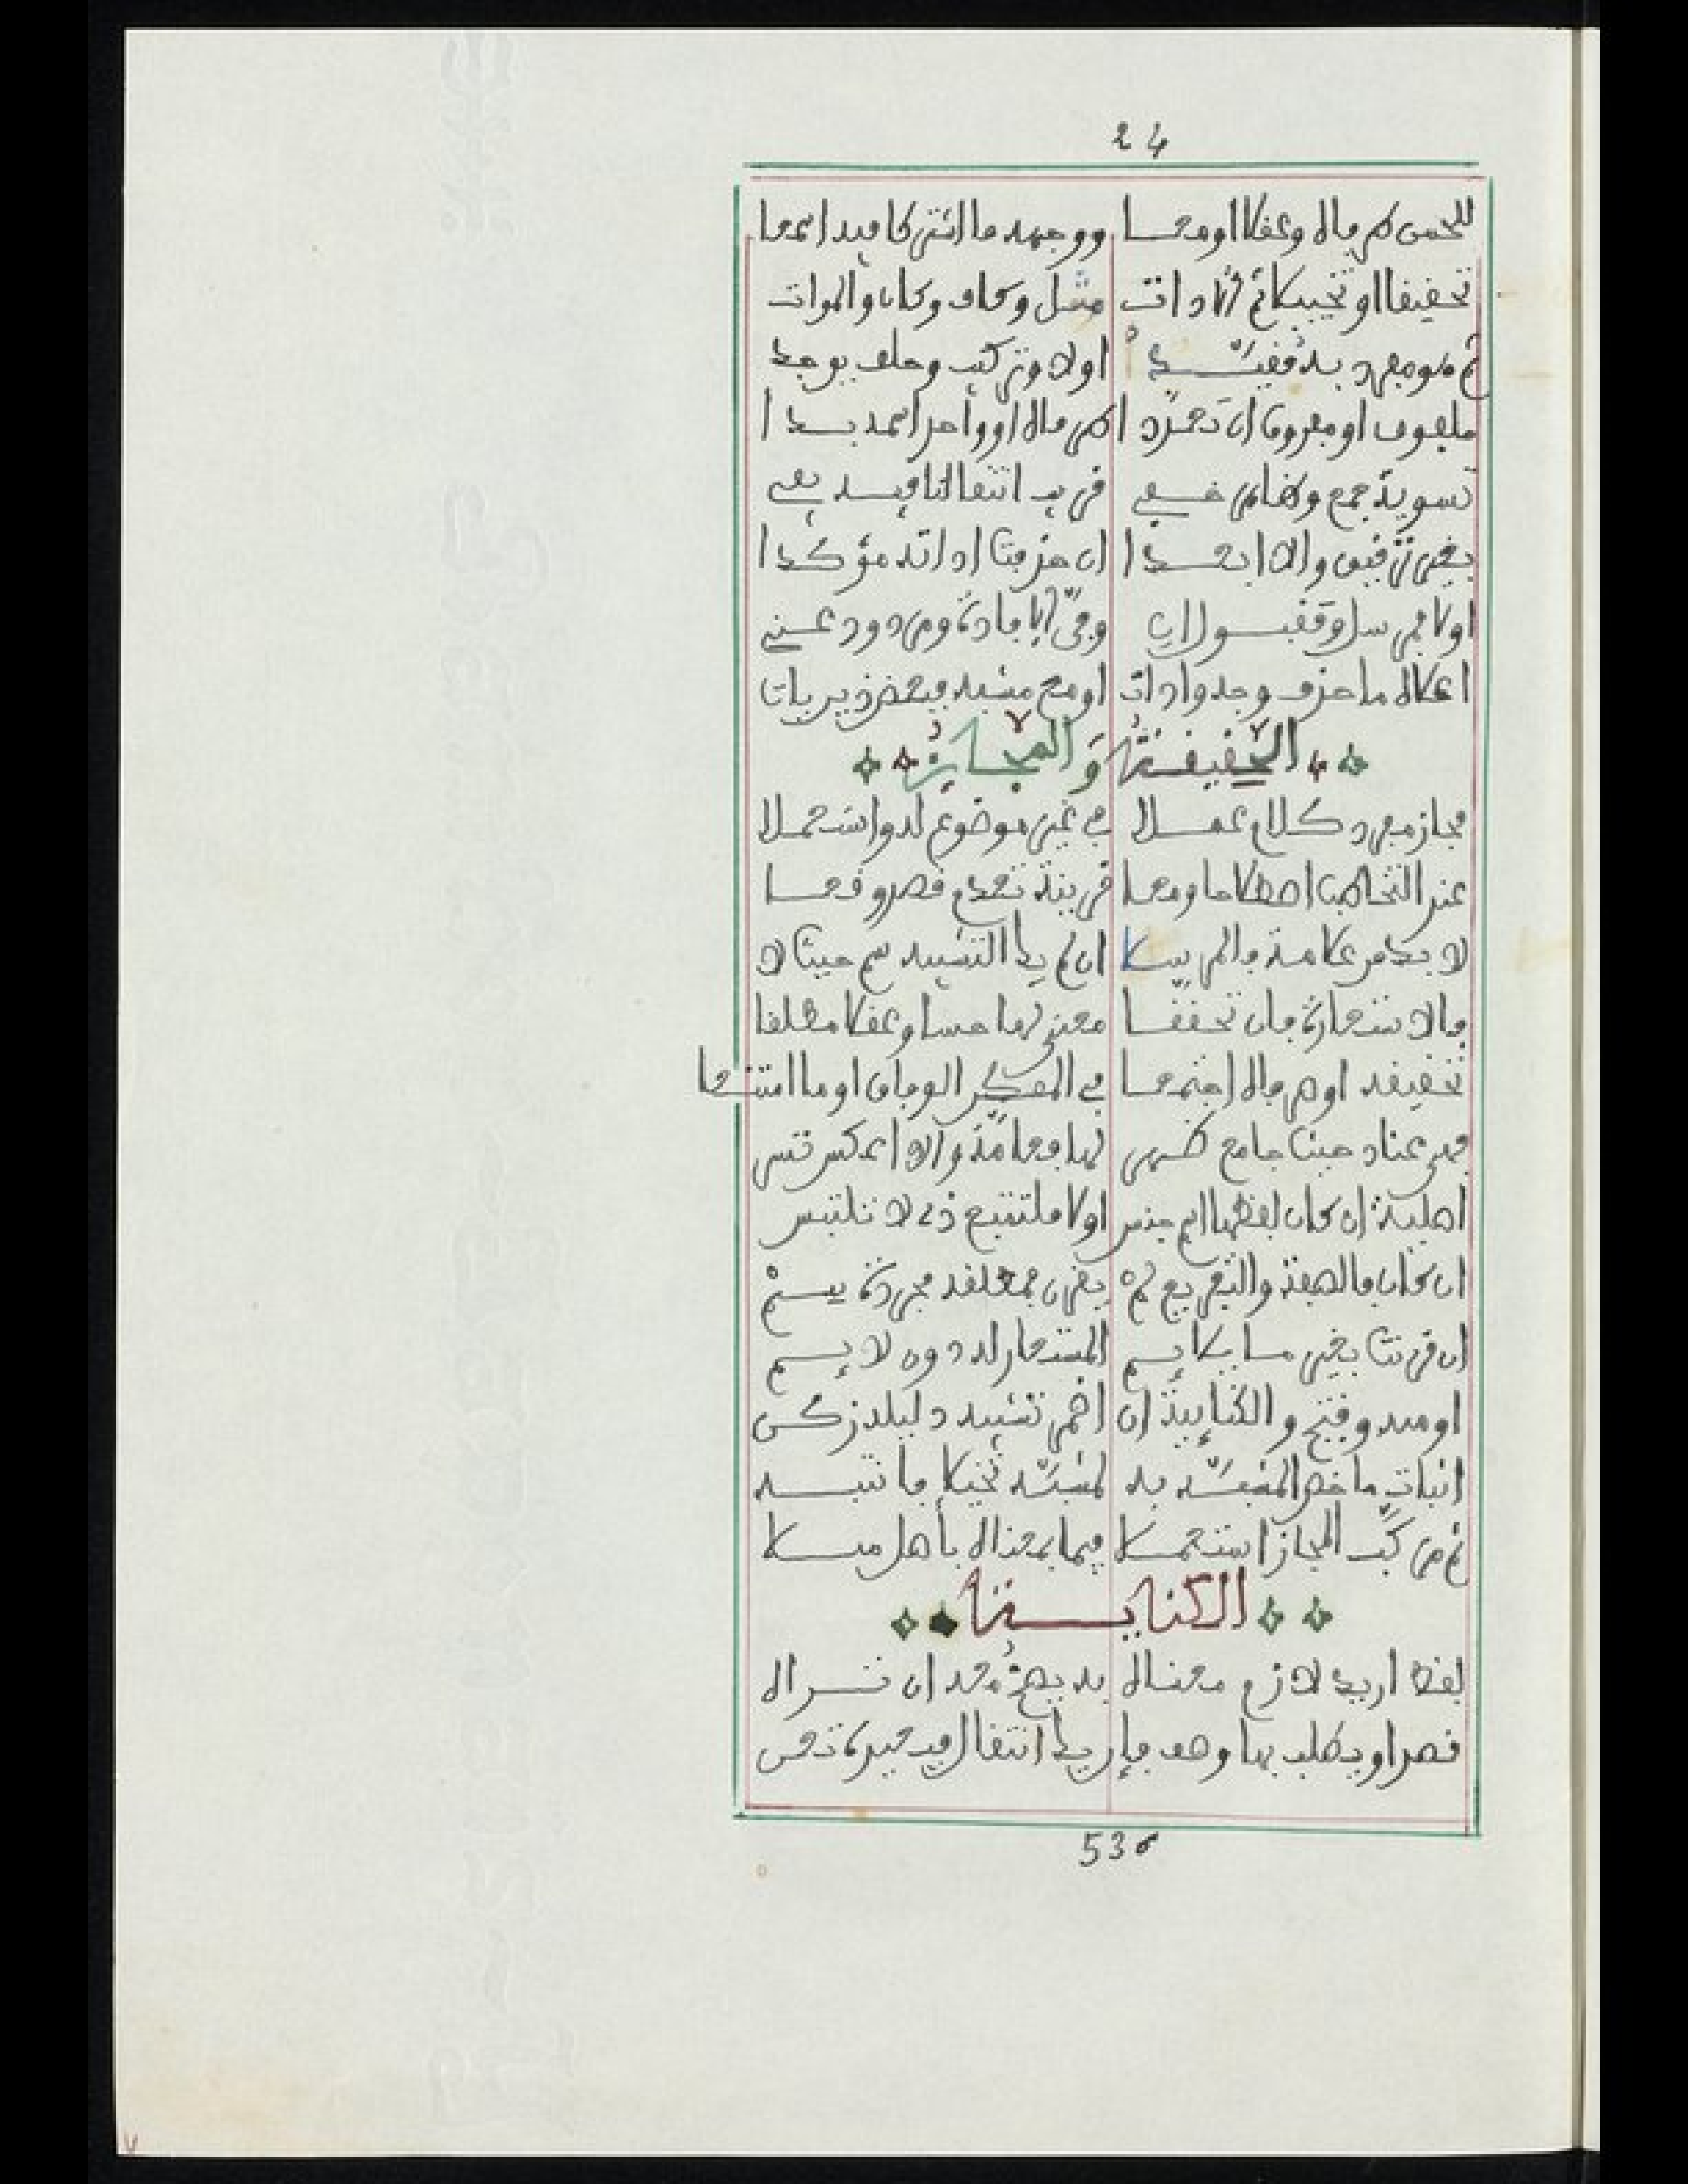 24
للحس طرفاه وعقلا او معا ووجهه ما اشتركا فيه اسمعا
تحقيقا او تخييلا ثم الادات مثل وكاف وكأن والموات
ثم هو مفرد به مقيد اولا وتركيب وخلف يوجد
ملفوف او مفروق ان تعدد ا طرفاه او واحد اسمه بدا
تسوية جمع وظاهر خفي قريب انتقالنا فيه يفي
بغير تدقيق والا ابعدا ان حذفت اداته مؤكدا
اولا فمرسل ومقبول وفى افادة ومردود عني
اعلاه ما حذف وجه وادات او مع مشبه فبعض ذين يات
الحقيقة والمجاز
مجاز مفرد كلام عملا في غير موضوع له واستعملا
عند التخاطب اصطلاحا ومعا قرينة تعدم قصد وقعا
لا بد من علاقة فالمرسلا ان لم يك التشبيه ثم حيث لا
فالاستعارة فان تحققا معنى لها حسا وعقلا مطلقا
تحقيقه او طرفاه اجتمعا في الممكن الوفاق او ما امتنعا
فهى عناد حيث جامع ظهر لها فعامة والا اعكس تقس
اصلية ان كان لفظها اسم جنس اولا فلتتبع ذى لا تلتبس
ان كان فالصفة والتفريع لم يقرن بمطلقه مجردة يسم
ان قرنت بغير ما يلايم المستعار له دون لا يسم
او منه وفتح والكناية ان اضمر تشبيه دليله زكن
اثبات ما خص المشبه به لمشبه تخيلا فانتبه
ثم مركب المجاز استعملا فيما بمعناه باصل مثلا
الكناية
لفظ اريد لازم معناه به يصح معه ان نراه
قصد او يطلب بها وصف فان يك انتقال فيه
536